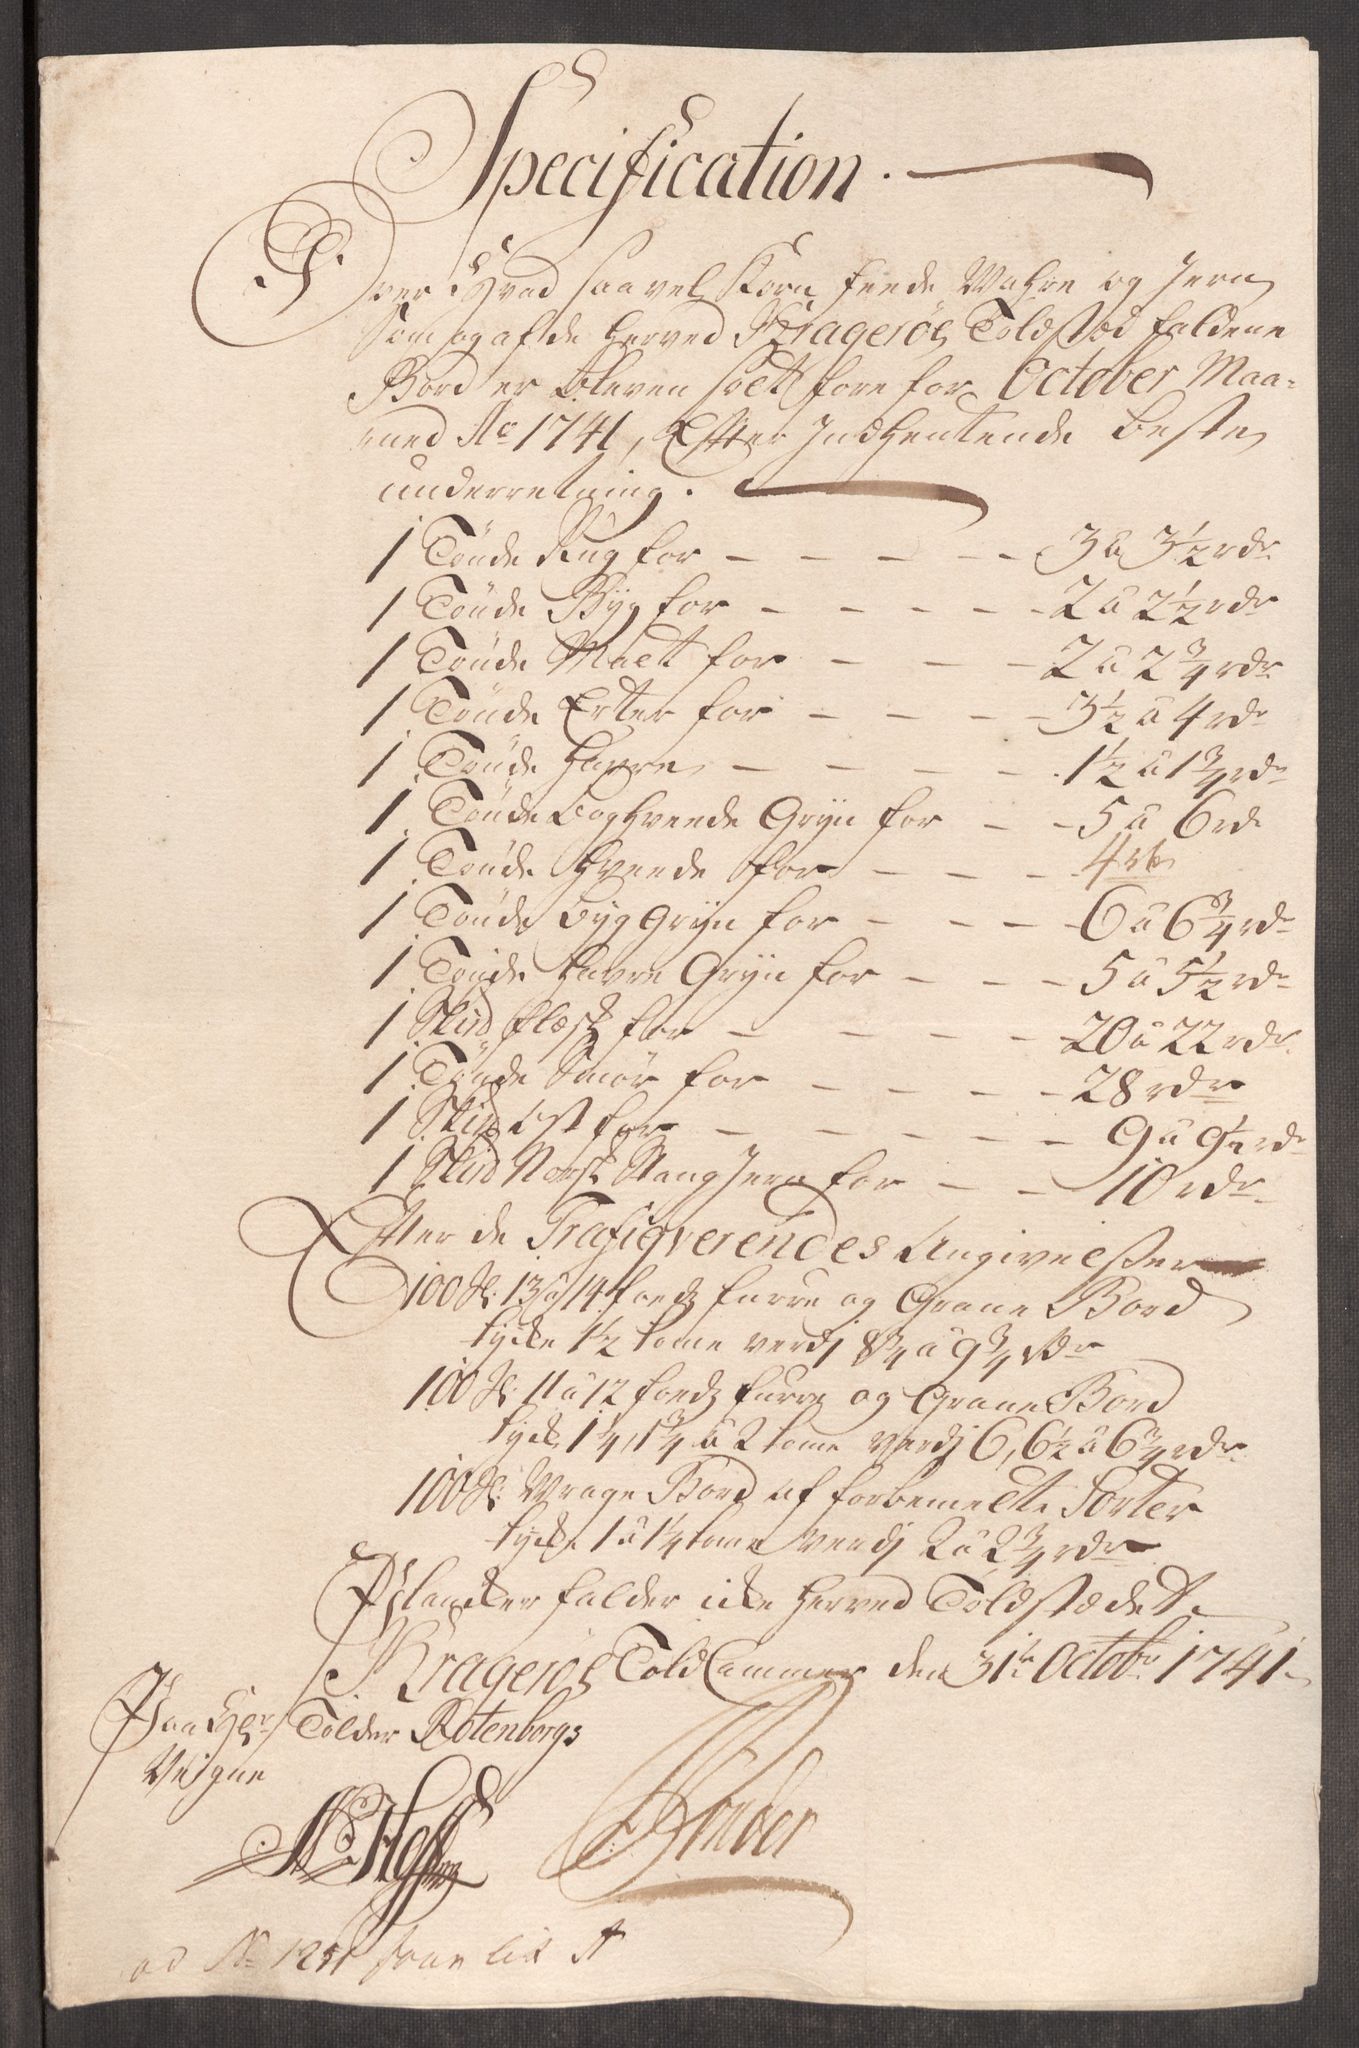 Specification.
Over Hvad saavel Korn feede Wahre og Jern
Som og af de herved Kragerøes Toldsted faldene
Bord er bleven solt fore for October Maa-
ned Ao 1741, Efter Indhentende beste
underretning.
1 Tönde Rug for — — — — — 3 a 3½ rdr
1 Tönde Byg for — — — — — 2 a 2½ rdr
1 Tönde Malt for — — — 2 a 2¾ rdr
1 Tönde Erter for — — — — 3½ a 4 rdr
1 Tönde Havre — — — — — 1½ a 1¾ rdr
1 Tönde Boghveede Gryn for — — 5 a 6 rd
1 Tönde Hveede for — — — — 4 rd
1 Tönde Byg Gryn for — — — 6 a 6¾ rdr
1 Tönde Havre Gryn for — — — 5 a 5½ rdr
1 Skud flæsk for — — — — 20 a 22 rdr
1 Tönde Smör for — — — — 28 rdr
1 Skud Ost for — — — — — 9 a 9½ rdr
1 Skud Norsk Stang Jern for — — 10 rdr
Efter de Trafiqverendes Angivelser
100 St. 13 a 14 foedz furre og Grane Bord
tycke 1½ tome verdj 8¾ a 9¾ rdr
100 St. 11 a 12 foedz furre og Grane Bord
tyck 1¼, 1¾ a 2 tome verdj 6, 6½ a 6¾ rdr
100 St. Wrage Bord af forbemelte Sorter
tycke 1 a 1¼ tome verdj 2 a 2¾ rdr
Plancker falder icke herved Toldstædet
Kragerøes Told Cammer den 31te Octobr 1741
Paa Hr Tolder Rotenborgs
Vegne
ad No 1251